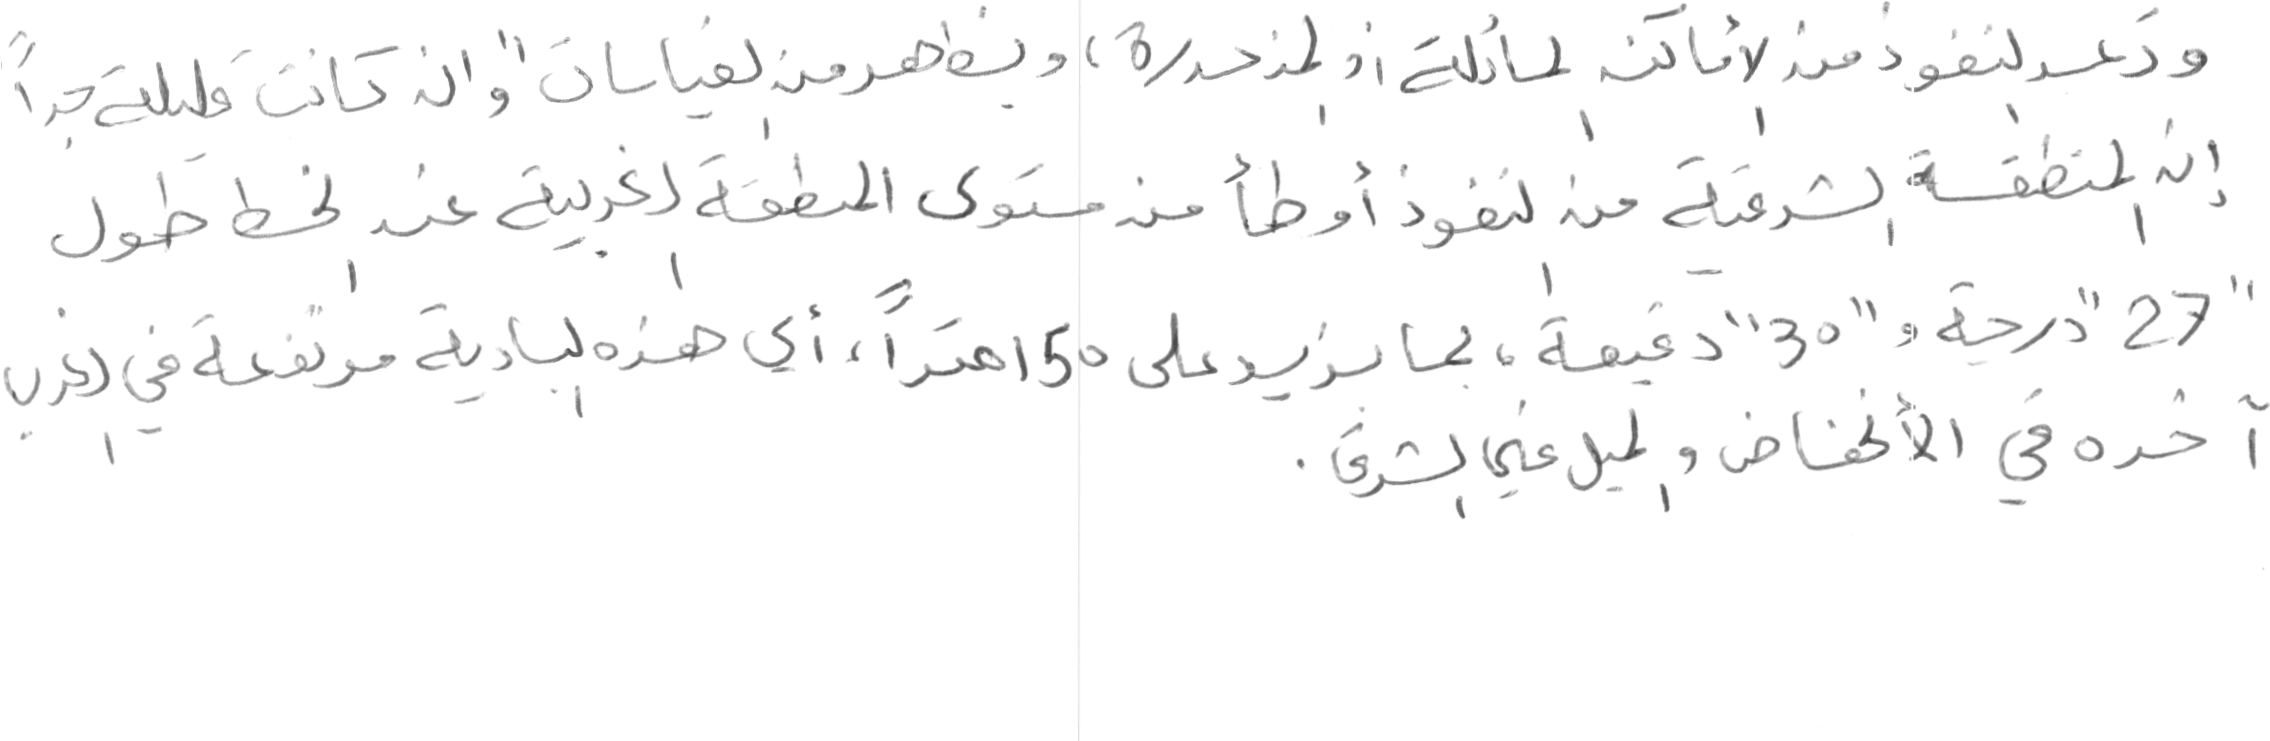 وتعد النفوذ من الأماكن المائلة أو المنحدرة، ويظهر من القياسات "وان كانت قليلة جداً
إن المنطقة الشرقية من النفوذ أوطأ من مستوى المنطقة الغربية عند الخط طول
"27" درجة و "30" دقيقة، بما يزيد على 150 متراً، أي هذه البادية مرتفعة في الغرب
آخده في الأنخفاض والميل في الشرق.